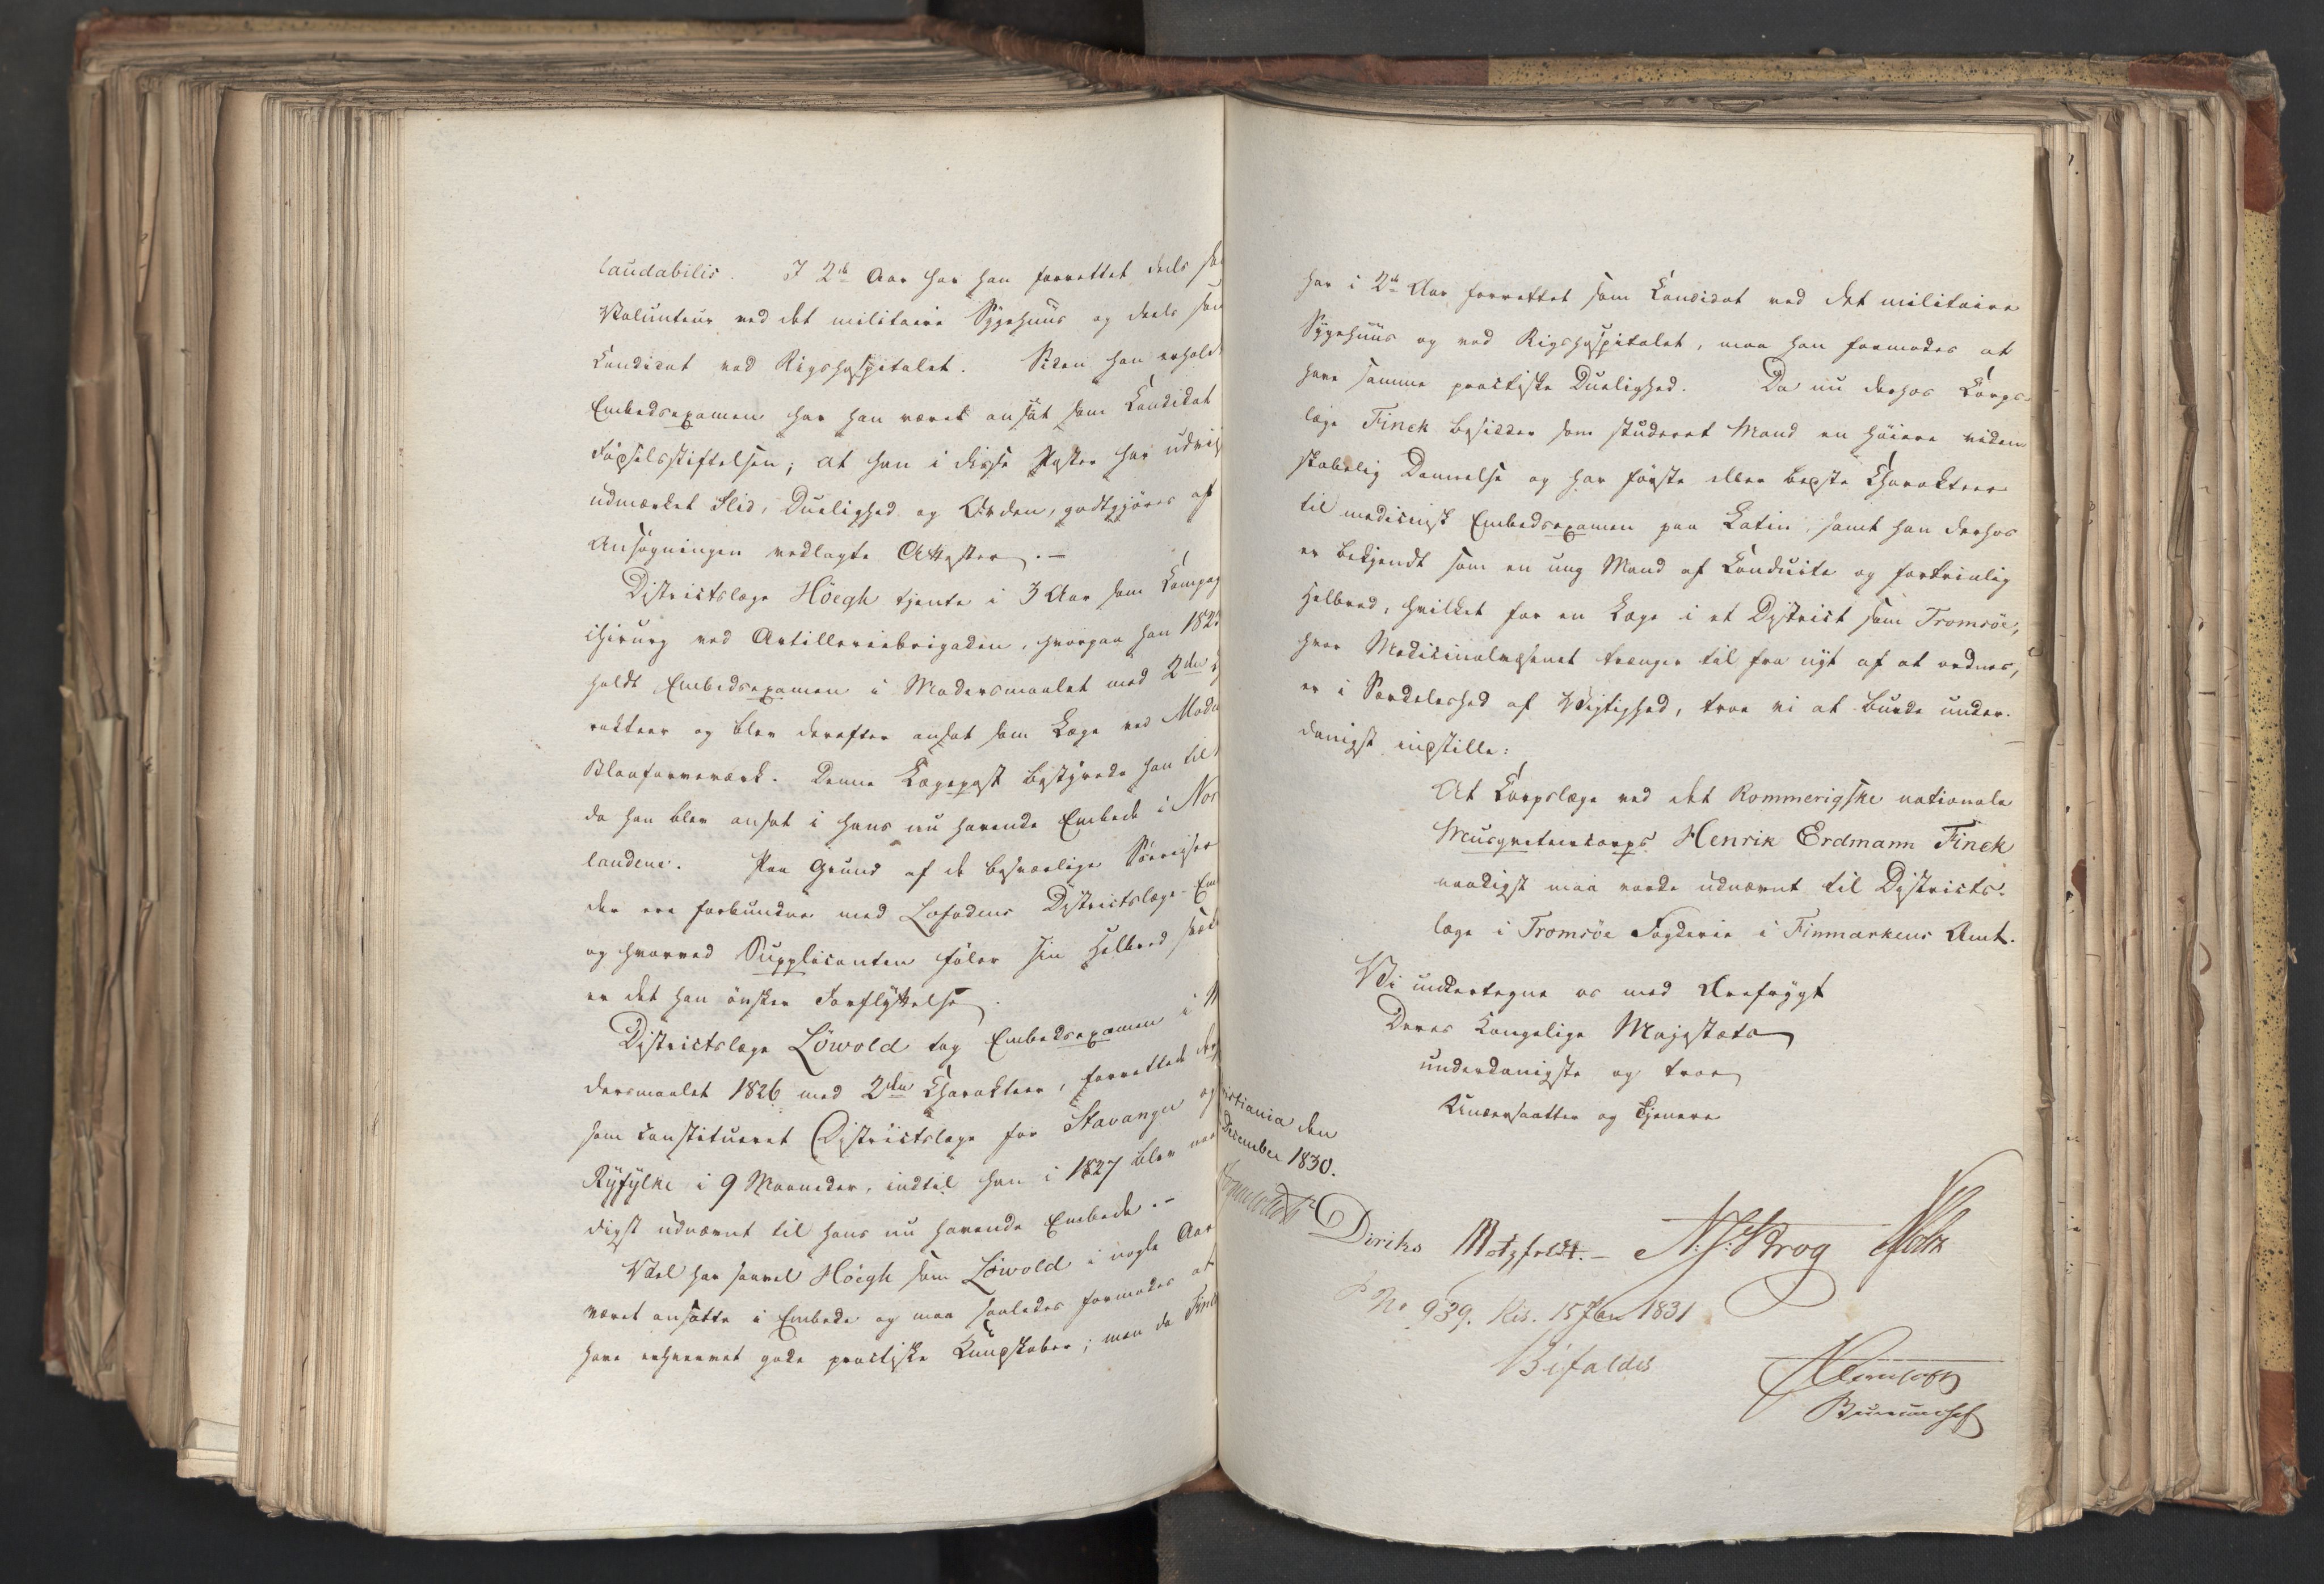 laudabilis. I 2de Aar har han forrettet deels so
Volunteur ved det militaire Sygehuus og deels som
Candidat ved Rigshospitalet. Siden han erholdt
Embedsexamen har han været ansat som Candidat
Födselsstiftelsen; at han i disse Poster har udvis
udmærket Flid, Duelighed og Orden, godtgjöres af
Ansøgningen vedlagte Attester. –
Districtslæge Höegh tjente i 3 Aar som Compag
chirurg ved Artilleriebrigaden, hvorpaa han 182
holdt Embedsexamen i Modersmaalet med 2den
rakteer og blev derefter ansat som Læge ved Modu
Blaafarveværk. Denne Lægepost bestyrede han til
da han blev ansat i hans nu havende Embede i Nor
landene. Paa Grund af de besværlige Söereiser
der ere forbundne med Lofodens Districtslæge-Em
og hvorved Supplicanten föler sin Helbred svæk
er det han önsker Forflyttelse.
Districtslæge Löwold tog Embedsexamen i M
dersmaalet 1826 med 2den Charakteer, forrettede der
som constitueret Districtslæge for Stavanger og
Ryfylke i 9 Maaneder, indtil han i 1827 blev naa
digst udnævnt til hans nu havende Embede. –
Vel har saavel Höegh som Löwold i nogle Aar
været ansatte i Embede og maa saaledes formodes at
have erhvervet gode practiske Kundskaber; men da Finck
har i 2de Aar forrettet som Candidat ved det militaire
Sygehuus og ved Rigshospitalet, maa han formodes at
have samme practiske Duelighed. Da nu derhos Corps-
læge Finck besidder som studeret Mand en höiere viden
skabelig Dannelse og har förste eller bedste Charakteer
til medicinsk Embedsexamen paa Latin, samt han derhos
er bekjendt som en ung Mand af Conduite og fortrinlig
Helbred, hvilket for en Læge i et District som Tromsöe,
hvor Medicinalvæsenet trænger til fra nyt af at ordnes,
er i Særdeleshed af Vigtighed, troe vi at burde under-
danigst indstille:
At Corpslæge ved det Rommerigske nationale
Musqueteercorps Henrik Erdmann Finck
naadigst maa vorde udnævnt til Districts-
læge i Tromsöe Fogderie i Finmarkens Amt.
Vi undertegne os med Ærefrygt
Deres Kongelige Majestæts
underdanigste og troe
Undersaatter og Tjenere
istiania den
December 1830.
Diriks Motzfeldt. – N. J. Krog Holst
P No 939. Res. 15 Jan 1831
Bifaldes